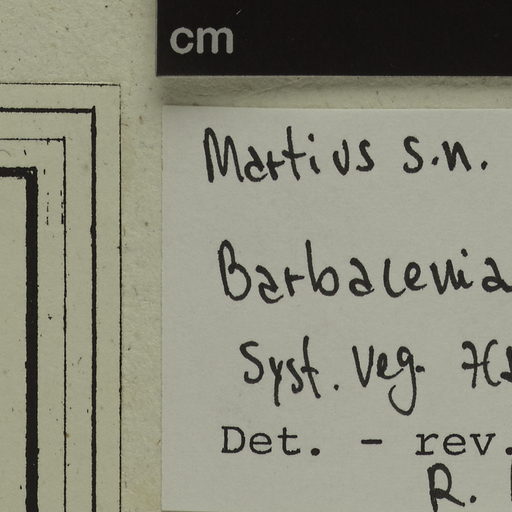 cm
Martius s.n.
Barbacenia
Syst. Veg.
Det. - rev.
R.